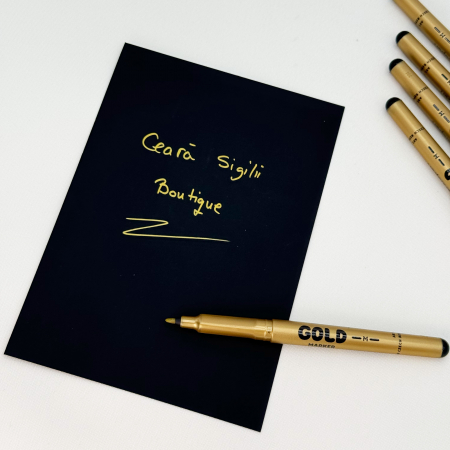 Ceară Sigilii
Boutique
GOLD
MARKER